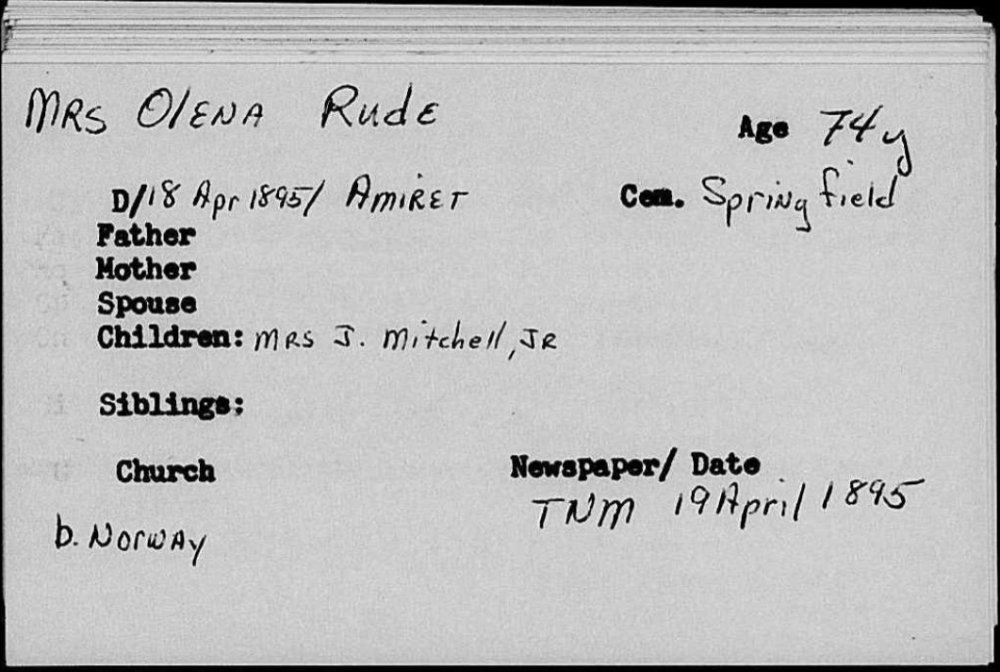 MRS OlENA RudE
Age 74y
D/18 Apr 1895/ AmiRET
Cem. Springfield
Father
Mother
Spouse
Children: MRS J. Mitchell, JR
Siblings:
Church
Newspaper/ Date
TNM 19 April 1895
b. Norway